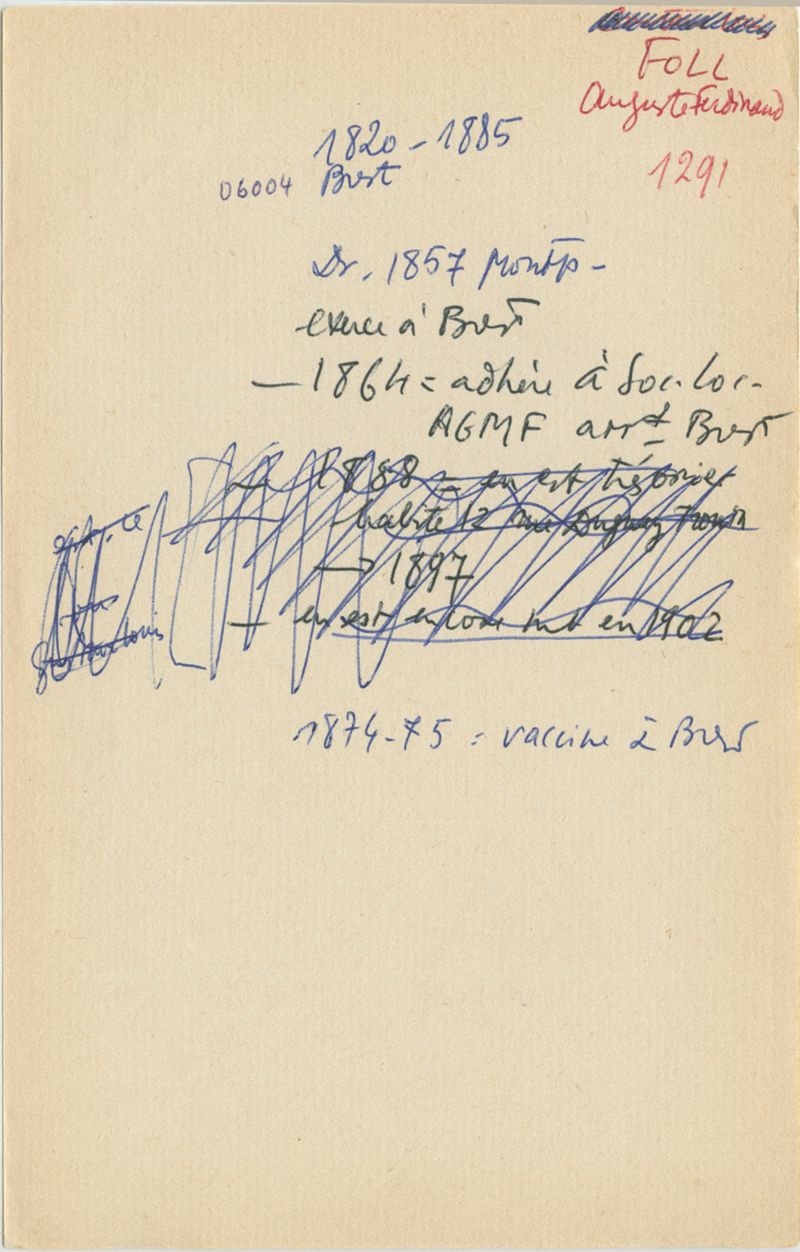 FOLL
Auguste Ferdinand
1291
1820-1885
06004 Brest
Dr. 1857 Montp-
exerce à Brest
— 1864 = adhère à Soc. loc.
AGMF arrt Brest
— 1888 = en est trésorier
habite 12 rue Duguay Trouin
→ 1897
— en est encore en 1902
1874-75 : vaccine à Brest